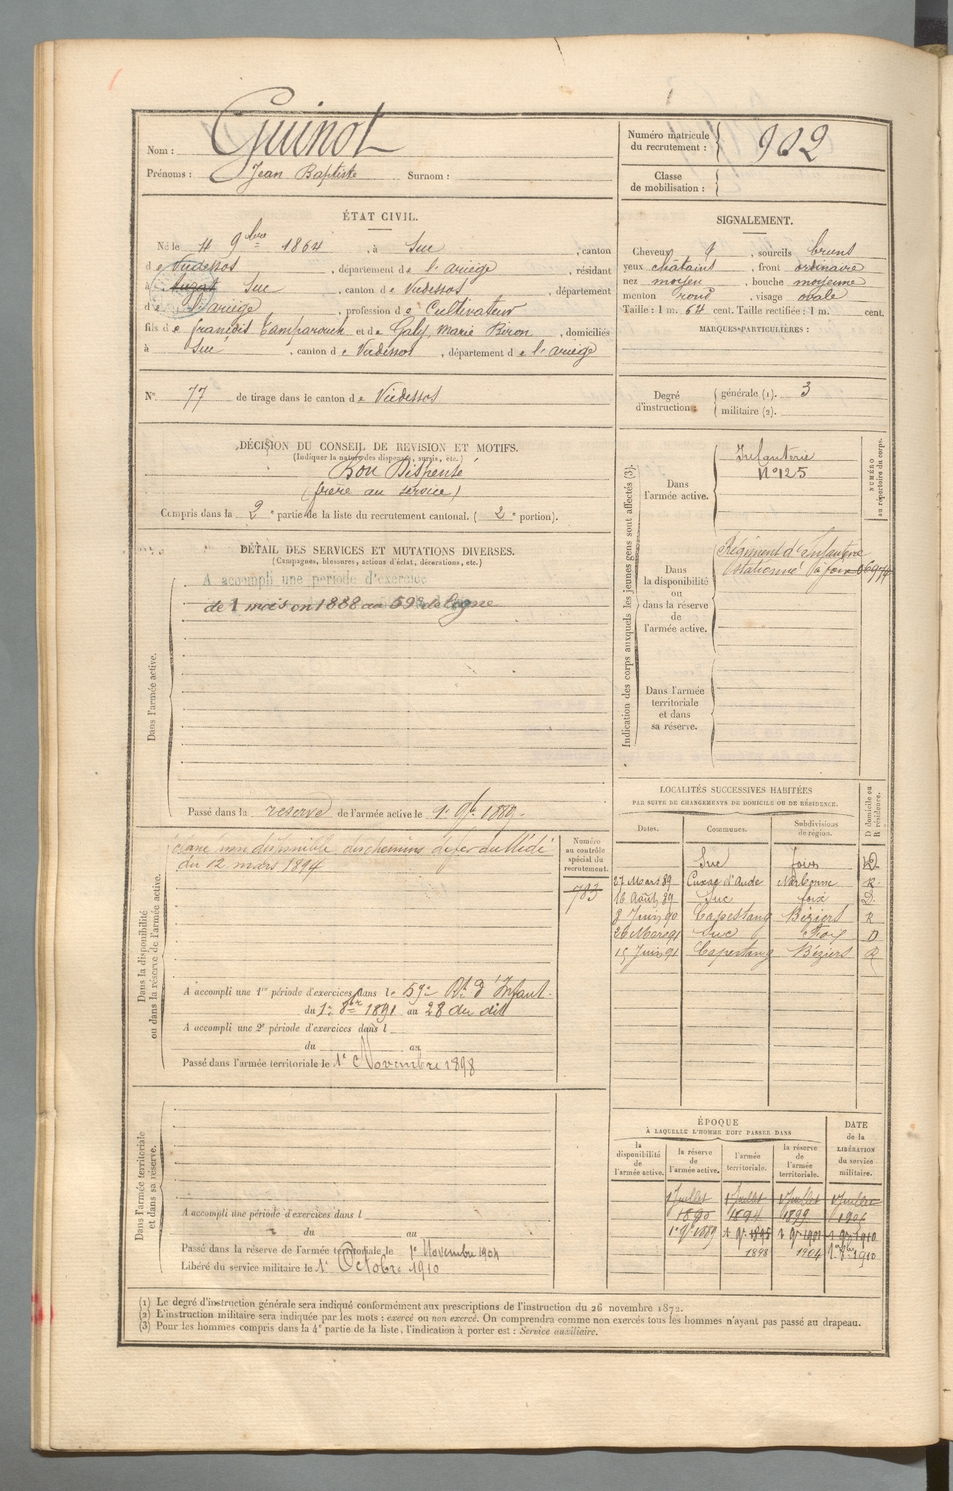 Nom : Guinot
Prénoms : Jean Baptiste Surnom :
Numéro matricule du recrutement : 902
Classe de mobilisation :
ÉTAT CIVIL.
Né le 4 9bre 1864, à Suc, canton
de Vicdessos, département de l'ariège, résidant
à Auzat Suc, canton de Vicdessos, département
de l'ariège, profession de Cultivateur
fils de françois et de Galy Marie, domiciliés
à Suc, canton de Vicdessos, département de l'ariège
N° 77 de tirage dans le canton de Vicdessos
DÉCISION DU CONSEIL DE REVISION ET MOTIFS.
(Indiquer la nature des dispenses, sursis, etc.)
Bon Dispensé
(frere au service)
Compris dans la 2e partie de la liste du recrutement cantonal. (2e portion).
DÉTAIL DES SERVICES ET MUTATIONS DIVERSES.
(Campagnes, blessures, actions d'éclat, décorations, etc.)
Dans l'armée active.
A accompli une période d'exercice
de 1 mois en 1888 au 59e de ligne
Passé dans la reserve de l'armée active le 1er 9bre 1889.
Dans la disponibilité
ou dans la réserve de l'armée active.
Classé non disponible des chemins de fer du Midi
du 12 mars 1894
Numéro
au contrôle
spécial du
recrutement.
783
A accompli une 1re période d'exercices dans le 59e Rt d'Infant.
du 1er 8bre 1891 au 28 du dit
A accompli une 2e période d'exercices dans l
du au
Passé dans l'armée territoriale le 1er Novembre 1898
Dans l'armée territoriale
et dans sa réserve.
A accompli une période d'exercices dans l
du au
Passé dans la réserve de l'armée territoriale le 1er Novembre 1904
Libéré du service militaire le 1er Octobre 1910
SIGNALEMENT.
Cheveux, sourcils bruns
yeux chatains, front ordinaire
nez moyen, bouche moyenne
menton rond, visage ovale
Taille : 1 m. 64 cent. Taille rectifiée : 1 m. cent.
MARQUES PARTICULIÈRES :
Degré
d'instruction :
générale (1). 3
militaire (2).
Indication des corps auxquels les jeunes gens sont affectés (3).
NUMÉRO
au répertoire du corps.
Dans
l'armée active.
Infanterie
N° 125
Dans
la disponibilité
ou
dans la réserve
de
l'armée active.
Régiment d'infanterie
stationné à foix
Dans l'armée
territoriale
et dans
sa réserve.
LOCALITÉS SUCCESSIVES HABITÉES
PAR SUITE DE CHANGEMENTS DE DOMICILE OU DE RÉSIDENCE.
Dates. Communes. Subdivisions de région. D domicile ou R résidence.
Suc foix D
27 Mars 89 Cuxac d'Aude Narbonne R
16 Août 89 Suc foix D
8 Juin 90 Capestang Béziers R
26 Mars 91 Suc Foix D
15 Juin 91 Capestang Béziers R
ÉPOQUE
À LAQUELLE L'HOMME DOIT PASSER DANS
la disponibilité de l'armée active. la réserve de l'armée active. l'armée territoriale. la réserve de l'armée territoriale.
DATE de la LIBÉRATION du service militaire.
1 Juillet 1 Juillet 1 Juillet 1 Juillet
1890 1894 1899
1er 9bre 1889 1 9bre 1895 1 9bre 1901 1 9bre 1910
1898 1904 1910
(1) Le degré d'instruction générale sera indiqué conformément aux prescriptions de l'instruction du 26 novembre 1872.
(2) L'instruction militaire sera indiquée par les mots : exercé ou non exercé. On comprendra comme non exercés tous les hommes n'ayant pas passé au drapeau.
(3) Pour les hommes compris dans la 4e partie de la liste, l'indication à porter est : Service auxiliaire.